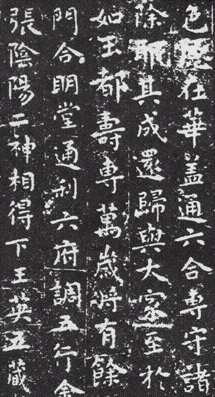 色隱在華蓋通六合專守諸
除耶其成還歸與大家至於
如玉都壽專萬歲將有餘
門合明堂通利六府調五行金
張陰陽二神相得下玉英五藏